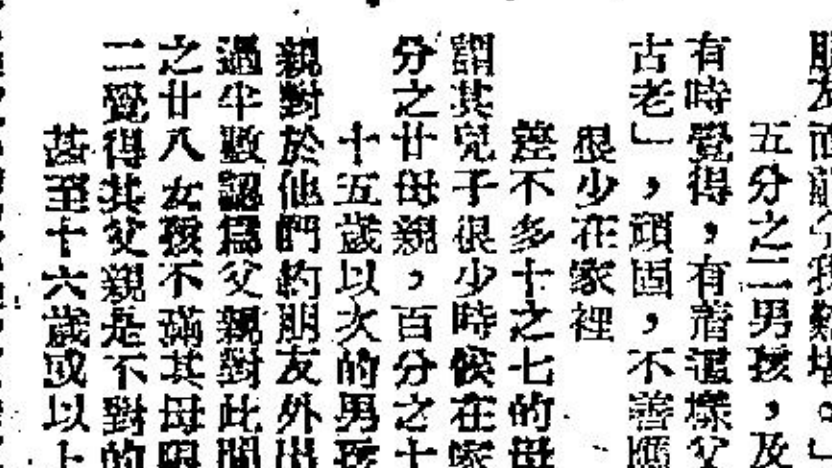 五分之二男孩，及
有時覺得，有着這樣父
古老」，頑固，不善
很少在家裡
差不多十之七的母
謂其兒子很少時候在家
分之廿母親，百分之十
十五歲以次的男孩
親對於他們約朋友外出
過半數認爲父親對此
之廿八女孩不滿其母
二覺得其父親是不對的
甚至十六歲或以上